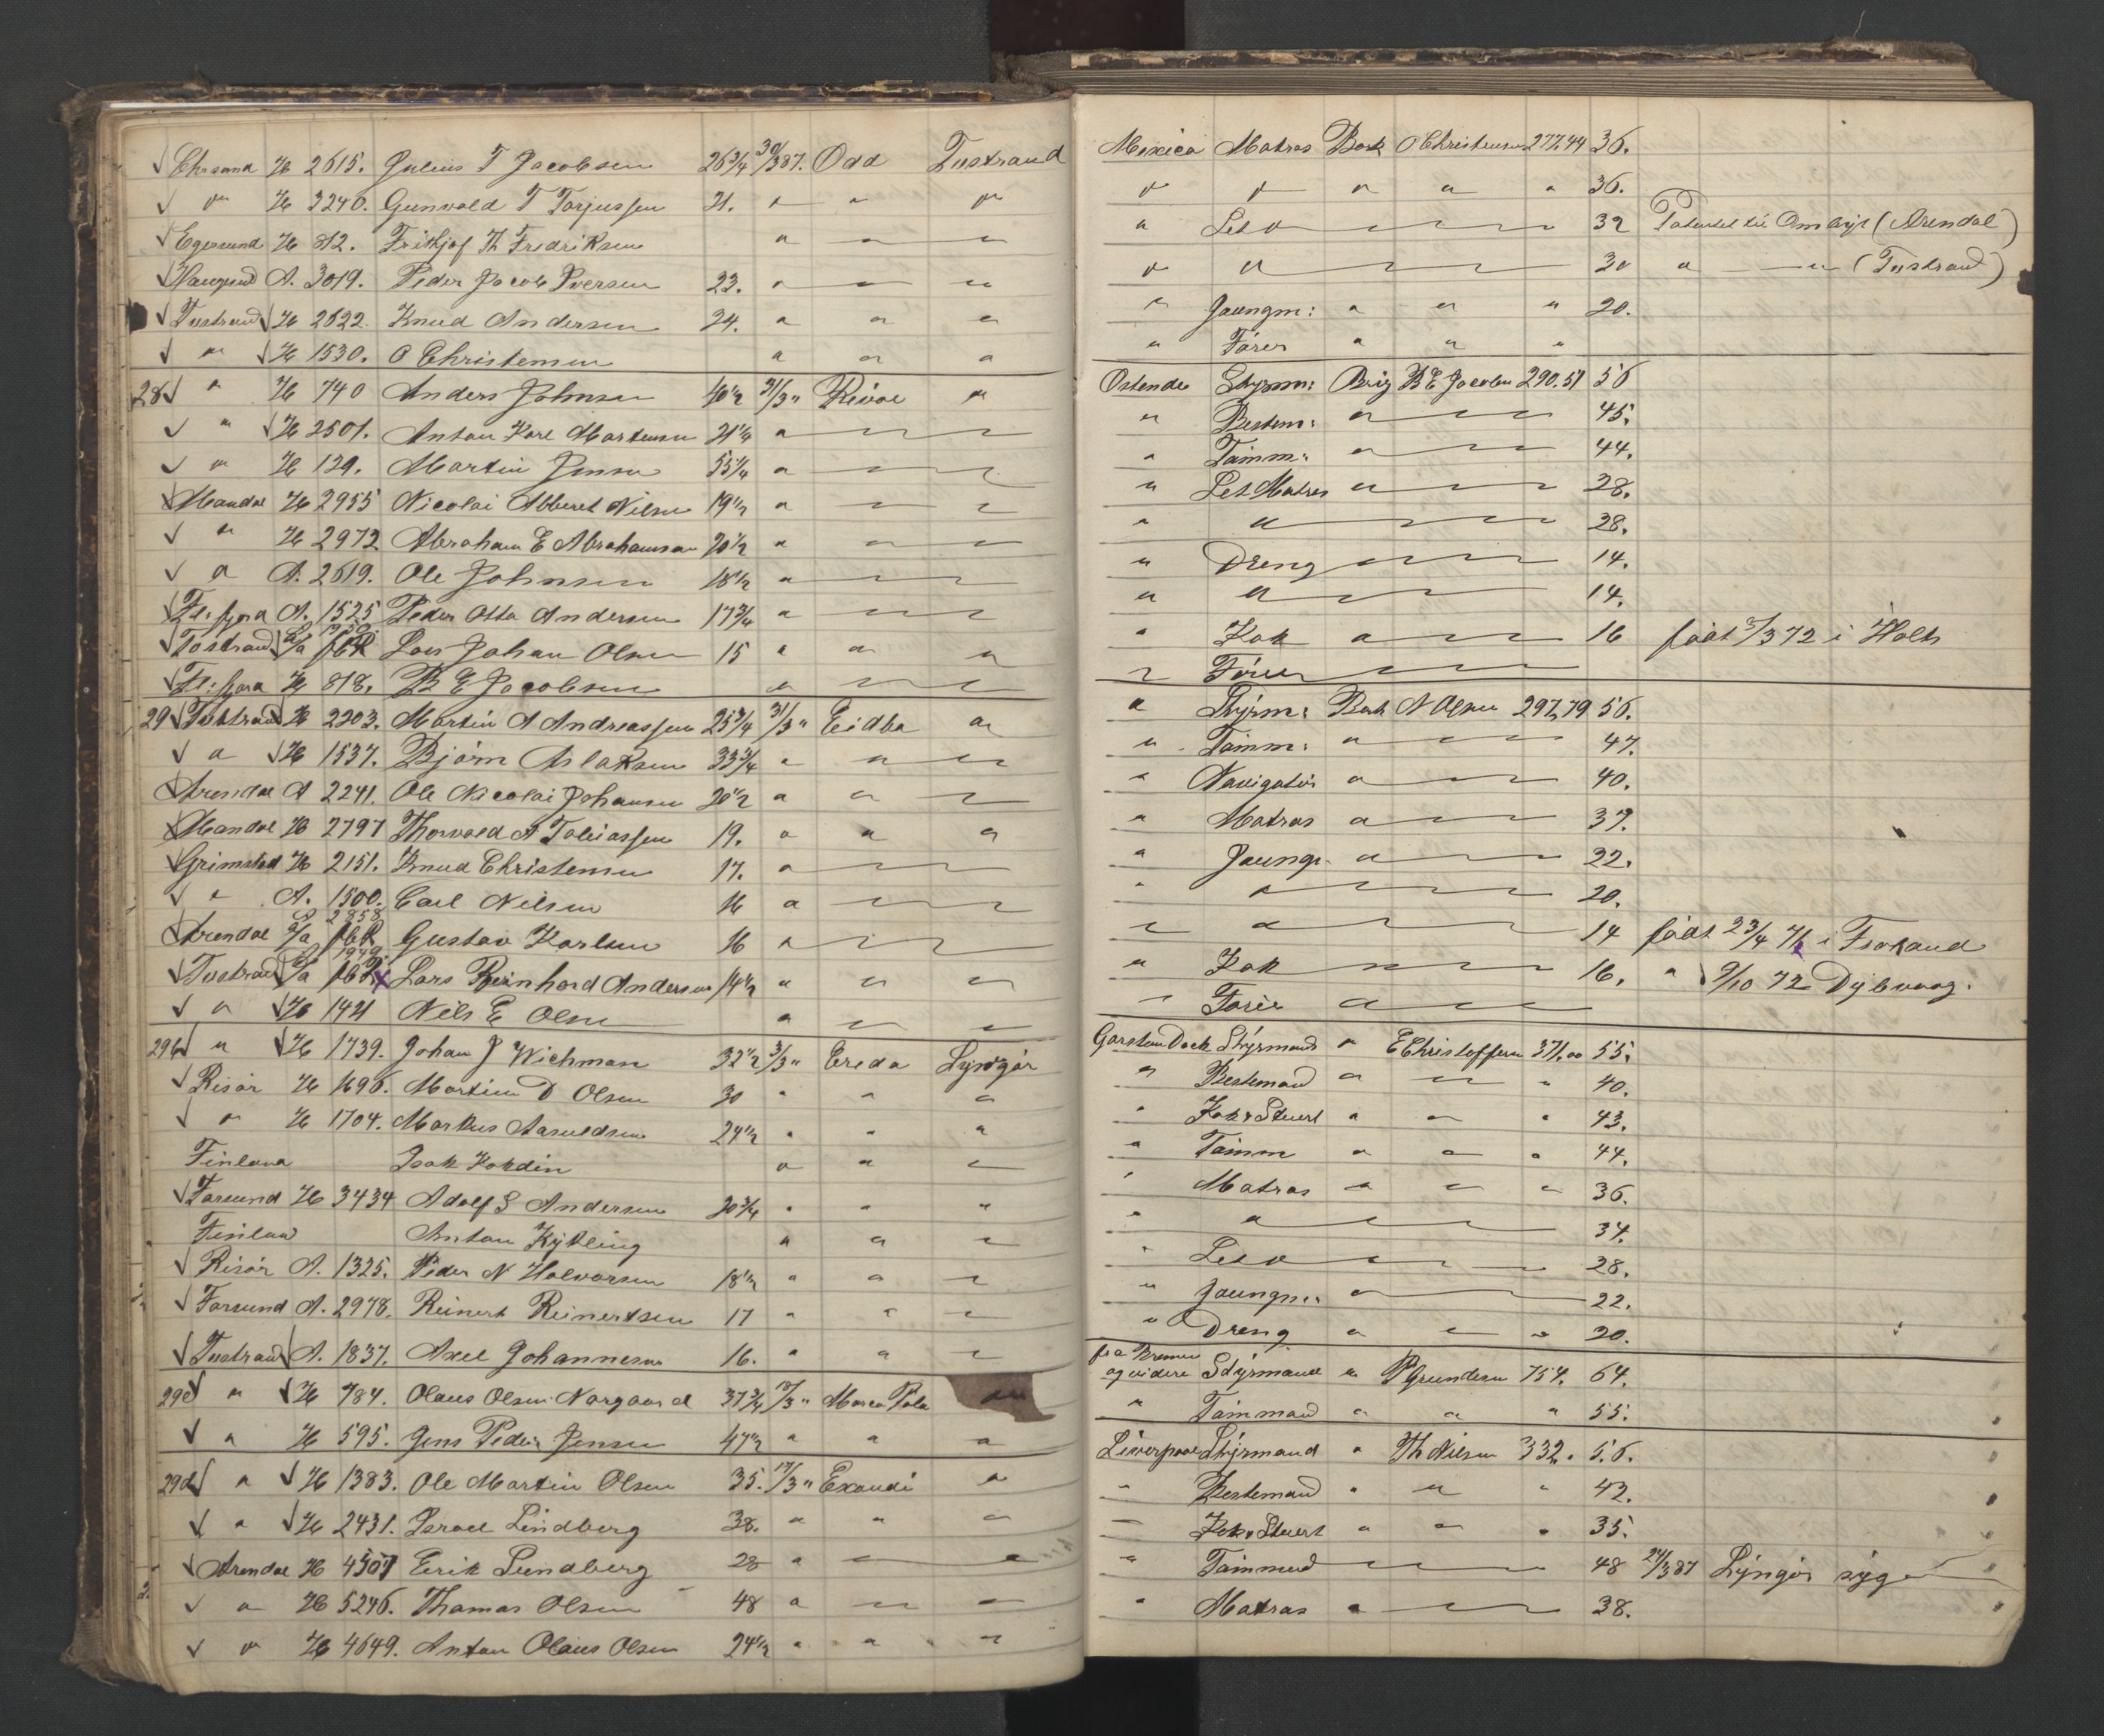 Chrsand H 2615. Julius T Jacobsen 26 3/4 30/3 87. Odd Tvstrand
" H 3240. Gunvald T Torjussen 21. " " "
Egersund H 812. Frithjof Th Fredriksen " " "
Haugesund A. 3019. Peder Jacob Iversen 23. " " "
Tvstrand H 2622. Knud Andersen 24. " " "
" H 1530. O Christensen " " "
28 " H 740 Anders Johnsen 40 1/2 31/3 " Rival "
" H 2501. Anton Karl Martensen 21 1/4 " " "
" H 129. Martin Jensen 55 1/4 " " "
Mandal H 2955 Nicolai Albert Nilsen 19 1/2 " " "
" H 2972 Abraham E Abrahamsen 20 1/2 " " "
" A. 2619. Ole Johnsen 18 1/2 " " "
Fl: fjord A. 1525 Peder Otto Andersen 17 3/4 " " "
Tvstrand Lars Johan Olsen 15 " " "
Fl: fjord H 818. B E Jacobsen " " "
29 Tvstrand H 2203. Martin A Andreassen 25 3/4 31/3 " Eidba "
" H 1537. Bjørn Aslaksen 33 3/4 " " "
Arendal A 2241. Ole Nicolai Johansen 20 1/2 " " "
Mandal H 2797 Thorvald A Tobiassen 19. " " "
Grimstad H 2151. Knud Christensen 17. " " "
" A. 1500. Carl Nilsen 16 " " "
A 2858
Arendal Gustav Karlsen 16 " " "
Tvstrand Lars Reinhard Andersen 14 1/2 " " "
" H 1421 Nils E Olsen " " "
29b " H 1739. Johan J Wichman 32 1/2 3/3 " Ereda Lyngør
Risør H 1696. Martin D Olsen 30 " " "
" H 1704. Markus Aasuldsen 24 1/2 " " "
Finland Isak Kokdin " " "
Farsund H 3434 Adolf S Andersen 20 3/4 " " "
Finland Anton Kytling " " "
Risør A. 1325. Peder N Halvorsen 18 1/2 " " "
Farsund A. 2978. Reinert Reinertsen 17 " " "
Tvstrand A. 1837. Axel Johannesen 16. " " "
29c " H 784. Olaus Olsen Norgaard 37 3/4 17/3 " Marco Polo "
" H 595. Jens Peder Jensen 47 1/2 " " "
29d " H 1383. Ole Martin Olsen 35. 17/3 " Exaudi "
" H 2431. Israel Lindberg 38. " " "
Arendal H 4507 Erik Lundberg 28 " " "
" H 5246. Thomas Olsen 48 " " "
" H 4649. Anton Olaus Olsen 24 1/2 " " "
Mexico Matros Bark O Christensen 277,44 36.
" " " " " 36.
" Let d " " " 32 Patentet til Ombyt (Arendal)
" " " " " 30 " " (Tvstrand)
" Joungm: " " " 20.
" Fører " " "
Ostende Styrm: Brig B E Jacobsen 290.51 56
" Bestem: " " " 45.
" Tømm: " " " 44.
" Let Matros " " " 28.
" " " " " 28.
" Dreng " " " 14.
" " " " " 14.
" Kok " " " 16 født 3/3 72 i Holt
" Fører " " "
" Styrm: Bark N Olsen 297,79 56.
" Tømm: " " " 47.
" Navigatør " " " 40.
" Matros " " " 37.
" Joungm. " " " 22.
" " " " " 20.
" " " " " 14 født 23/4 71 i Frøland
" Kok " " " 16. " 9/10 72 Dybvaag.
" Fører " " "
Garston Dock Styrmand " E Christoffersen 371,00 55.
" Bestemand " " " 40.
" Kok & Stuert " " " 43.
" Tømm " " " 44.
" Matros " " " 36.
" " " " " 34.
" Let d " " " 28.
" Joungm: " " " 22.
" Dreng " " " 20.
fra Bremen
og videre Styrmand " P Gundersen 754. 64.
" Tømmand " " " 55.
Liverpool Styrmand " Th Nilsen 332. 56.
" Bestemand " " " 42.
" Kok & Stuert " " " 35.
" Tømmand " " " 48 24/3 87 Lyngør syg
" Matros " " " 38.